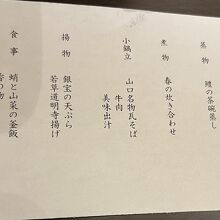 蒸物
鱧の茶碗蒸し
煮物
春の炊き合わせ
小鍋立
山口名物瓦そば
牛肉
美味出汁
揚物
銀宝の天ぷら
若草道明寺揚げ
食事
蛸と山菜の釜飯
香の物